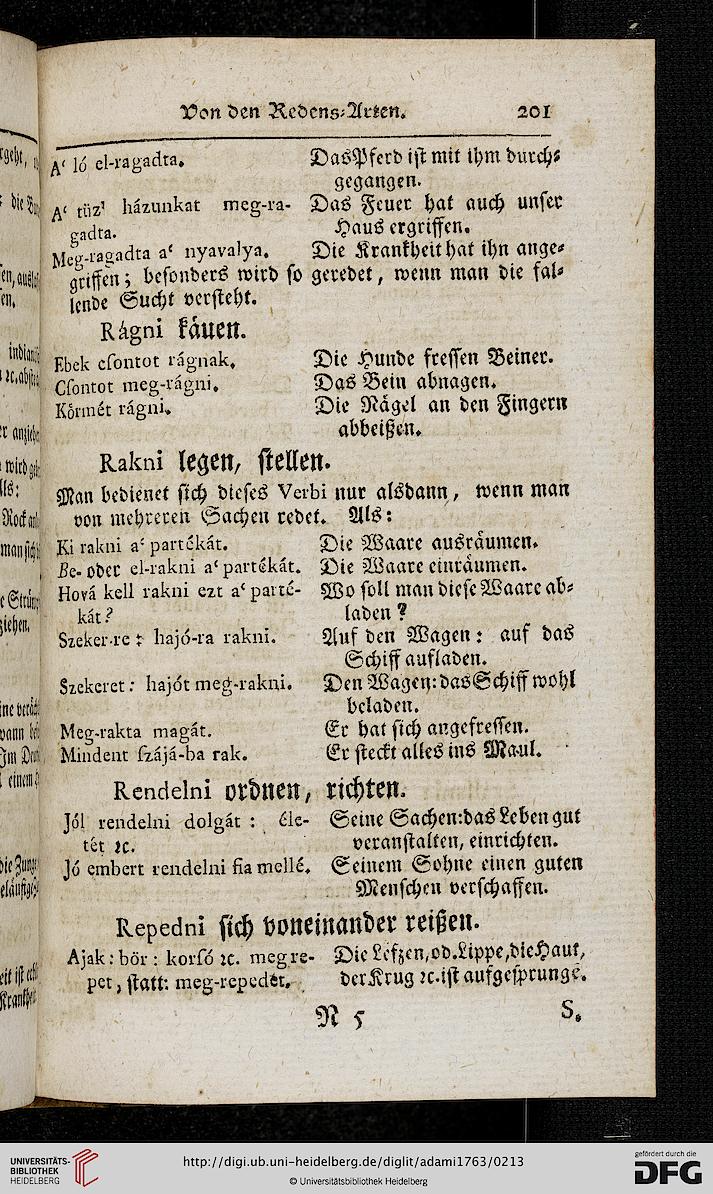 Von den Redens-Arten. 201
A' ló el-ragadta. Das Pferd ist mit ihm durch-
gegangen.
A' tüz' házunkat meg-ra- Das Feuer hat auch unser
gadta. Haus ergriffen.
Meg-ragadta a' nyavalya. Die Krankheit hat ihn ange-
griffen; besonders wird so geredet, wenn man die fal-
lende Sucht versteht.
Rágni käuen.
Ebek csontot rágnak. Die Hunde fressen Beiner.
Csontot meg-rágni. Das Bein abnagen.
Körmét rágni. Die Nägel an den Fingern
abbeißen.
Rakni legen, stellen.
Man bedienet sich dieses Verbi nur alsdann, wenn man
von mehreren Sachen redet. Als:
Ki rakni a' partékát. Die Waare ausräumen.
Be- oder el-rakni a' partékát. Die Waare einräumen.
Hová kell rakni ezt a' parté- Wo soll man diese Waare ab-
kát? laden?
Szeker-re : hajó-ra rakni. Auf den Wagen: auf das
Schiff aufladen.
Szekeret: hajót meg-rakni. Den Wagen: das Schiff wohl
beladen.
Meg-rakta magát. Er hat sich angefressen.
Mindent szájá-ba rak. Er steckt alles ins Maul.
Rendelni ordnen, richten.
Jól rendelni dolgát : éle- Seine Sachen: das Leben gut
tét ꝛc. veranstalten, einrichten.
Jó embert rendelni fia mellé. Seinem Sohne einen guten
Menschen verschaffen.
Repedni sich voneinander reißen.
Ajak: bör: korsó ꝛc. megre- Die Lefzen, od. Lippe, die Haut,
pet, statt: meg-repedet. der Krug ꝛc. ist aufgesprungē.
N 5 S.
UNIVERSITÄTS-
BIBLIOTHEK
HEIDELBERG
http://digi.ub.uni-heidelberg.de/diglit/adami1763/0213
© Universitätsbibliothek Heidelberg
gefördert durch die
DFG